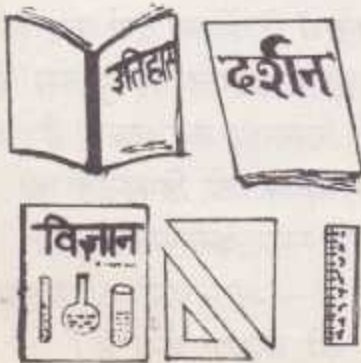 इतिहास
दर्शन
विज्ञान